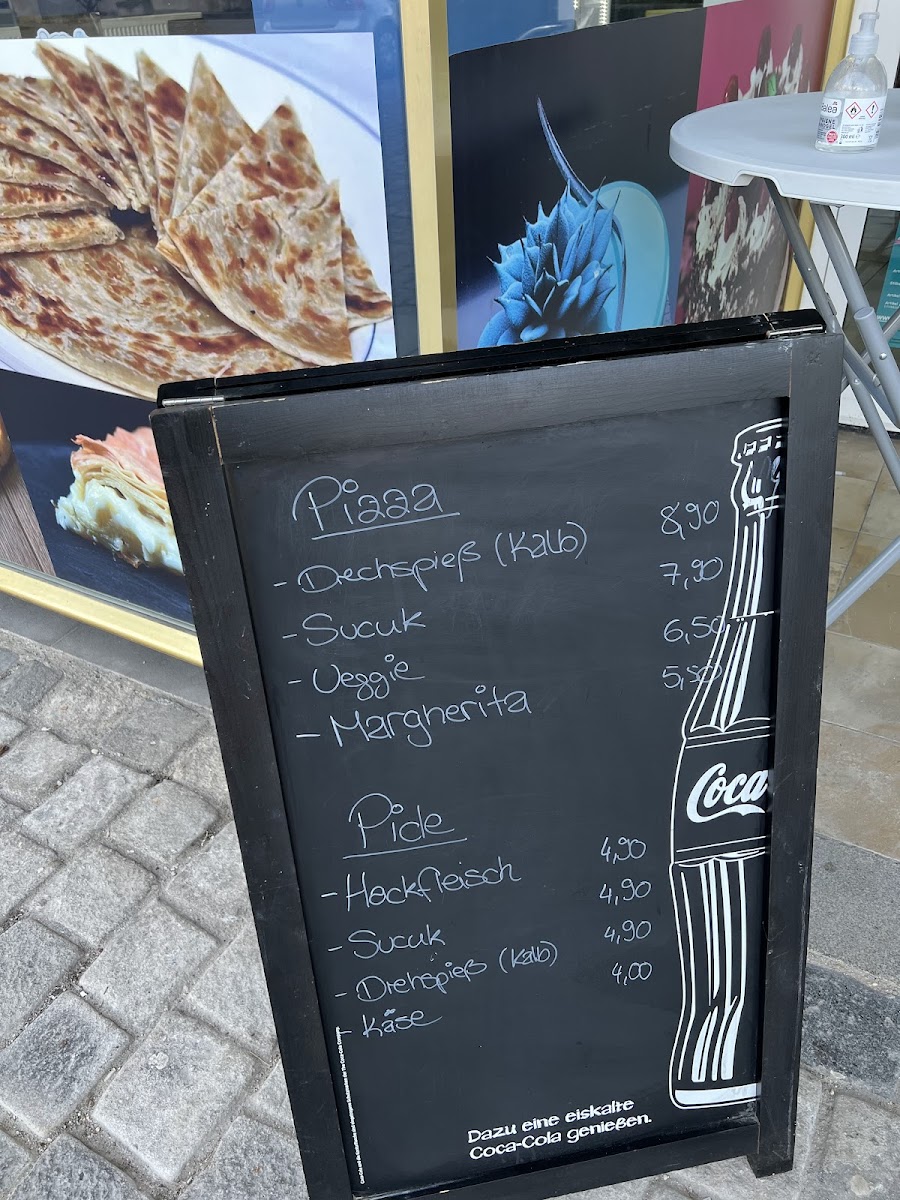 Pizza
- Dechspieß (Kalb) 8,90
- Sucuk 7,90
- Veggie 6,50
- Margherita 5,50
Pide
- Hackfleisch 4,90
- Sucuk 4,90
- Drehspieß (Kalb) 4,90
- Käse 4,00
Coca
Dazu eine eiskalte
Coca-Cola genießen.